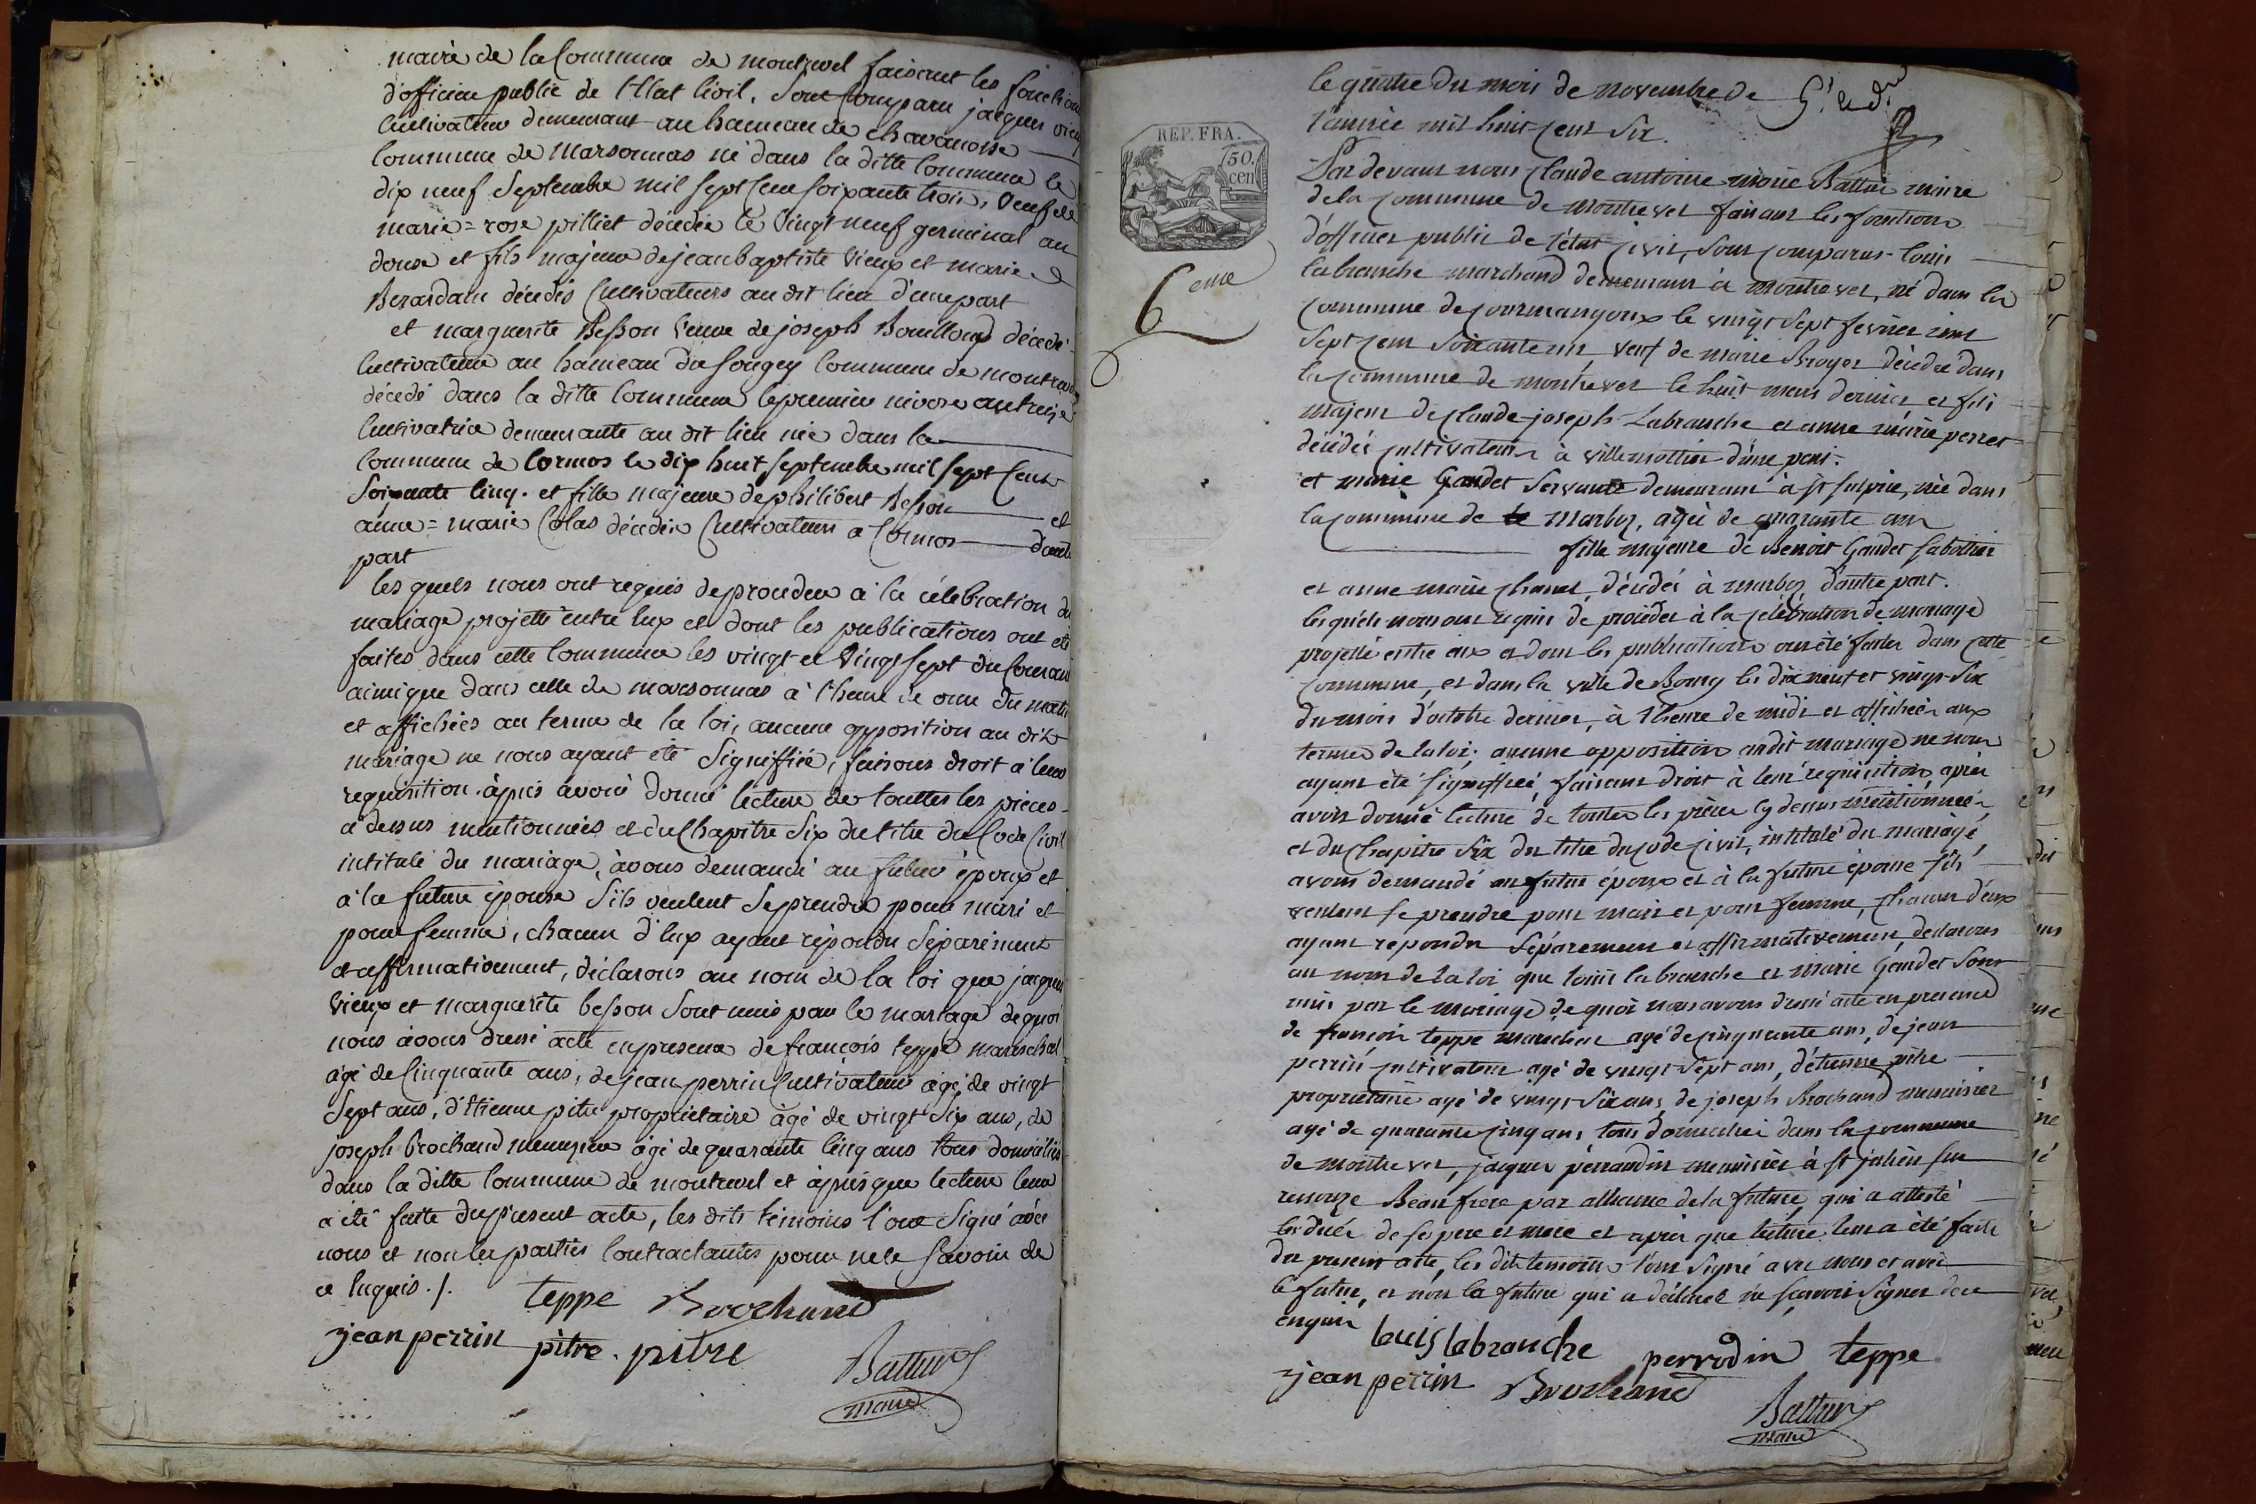 maire de la Commune de montrevel faisant les fonctions
d'officier public de l'Etat Civil, Sont Comparu jacques vieux
Cultivateur demeurant au hameau de chavanosse
Commune de Marsonnas né dans la ditte Commune le
dix neuf Septembre mil Sept Cent soixante trois, Veuf de
marie=rose pilliet décédée le Vingt neuf germinal an
douse et fils majeur de jean baptiste Vieux et marie
Berardan décédés Cultivateurs au dit lieu d'une part
et marguerite Besson Veuve de joseph Bouilloud décédé
Cultivateur au hameau du Sougey Commune de montrevel
décédé dans la ditte Commune le premier nivose an treize
Cultivatrice demeurante au dit lieu née dans la
Commune de Cormos le dix huit septembre mil sept Cent
Soixante Cinq. et fille majeure de philibert Besson et
anne=marie Colas décédés Cultivateurs a Cormos d'autre
part
les quels nous ont requis de proceder à la célébration du
mariage projetté entre eux et dont les publications ont eté
faites dans cette Commune les vingt et Vingt Sept du Courant
ainsi que dans celle de marsonnas à l'heure de onze du matin
et affichées au terme de la loi, aucune opposition au dit
mariage ne nous ayant été Signiffiée, faisons droit à leur
requisition. àprés àvoir donné lecture de touttes les pieces
ci dessus mentionnées et du Chapitre Six du titre du Code Civil
intitulé du mariage, àvons demandé au futur époux et
à la future épouse S'ils veulent Se prendre pour mari et
pour femme, chacun d'eux ayant répondu Séparément
et affirmativement, déclarons au nom de la loi que jacques
Vieux et marguerite besson Sont unis par le mariage de quoi
nous àvons dressé acte en presence de françois teppe marechal
âgé de Cinquante ans, de jean perrin Cultivateur àgé de vingt
Sept ans, d'Etienne pitre proprietaire àgé de vingt Six ans, de
joseph Brochand menuzier àgé de quarante Cinq ans tous domiciliés
dans la ditte Commune de montrevel et àprès que lecture leur
a été faitte du présent acte, les dits témoins l'ont Signé àvec
nous et non les parties Contractantes pour ne le Savoir de
ce Enquis ./.
teppe Brochand
jean perrin pitre . pitre
Battur
maire
le quatre du mois de novembre de
l'année mil huit cent Six.
REP. FRA.
50.
cen
6eme
Par devant nous Claude antoine marie Battur maire
de la Commune de Montrevel faisant les fonctions
d'officier public de l'état Civil, sont Comparus louis
labranche marchand demeurant à Montrevel, né dans la
Commune de Courmangoux le vingt Sept fevrier mil
Sept cent Soixante six, veuf de marie Broyer décédée dans
la Commune de Montrevel le huit mars dernier et fils
majeur de Claude-joseph Labranche et anne marie perret
décédés Cultivateurs à villemottier d'une part.
et marie Gaudet Servante demeurant à St sulpice, née dans
la Commune de Marboz, agée de quarante ans
fille majeure de Benoit Gaudet sabottier
et anne marie Chanel, décédés à Marboz d'autre part.
lesquels nous ont requis de procéder à la Celebration de mariage
projetté entre eux et dont les publications ont été faites dans cette
Commune, et dans la ville de Bourg les dix neuf et vingt-Six
du mois d'octobre dernier, à l'heure de midi et affichées aux
termes de la loi; aucune opposition audit mariage ne nous
ayant été signiffiée, faisant droit à leur requisition, après
avoir donné lecture de toutes les pièces cy dessus mentionnées,
et du Chapitre Six du titre du Code Civil, intitulé du mariage,
avons demandé au futur époux et à la future épouse s'ils
veulent se prendre pour mari et pour femme, Chacun d'eux
ayant repondu Séparement et affirmativement, declarons
au nom de la loi que louis labranche et Marie Gaudet Sont
unis par le Mariage de quoi nous avons dressé acte en presence
de françois teppe marechal agé de Cinquante ans, de jean
perrin Cultivateur agé de vingt Sept ans, d'étienne pitre
propriétaire agé de vingt-Six ans, de joseph Brochand menuisier
agé de quarante Cinq ans tous domiciliés dans la Commune
de Montrevel, jacques perraudin menuisier à St julien sur
renouze Beau frere par alliance de la future, qui a attesté
les décés de ses pere et mere et après que lecture leur a été faite
du present acte, les dits temoins l'ont Signé avec nous et avec
le futur, et non la future qui a déclaré ne sçavoir Signer de ce
enquis
louis labranche perrodin teppe
jean perrin Brochand
Battur
maire